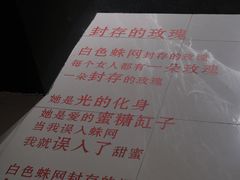 封存的玫瑰
白色蛛网封存的玫瑰
每个女人都有一朵玫瑰
一朵封存的玫瑰
她是光的化身
她是爱的蜜糖缸子
当我误入蛛网
我就误入了甜蜜
白色蛛网封存的玫瑰